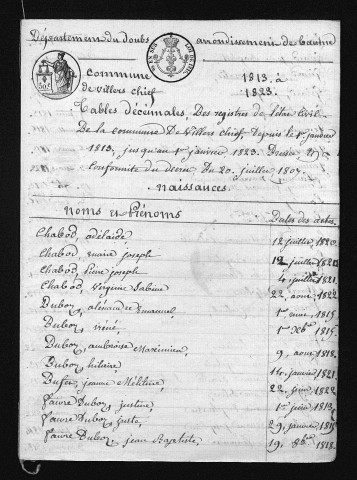 Département du doubs arrondissement de baume
commune 1813. à
de villers chief 1823.
Tables décennales, Des registres de l'état Civil
De la commune De Villers chief, Depuis le 1er janvier
1813, jusqu'au 1er janvier 1823. Dressée En
Conformité du décret Du 20. juillet 1807.
naissances.
noms et Prénoms Dates des actes
Chabod, adélaïde 12 juillet, 1820.
Chabod, marie joseph 12 juillet 1820
Chabod, Pierre joseph 4 juillet 1821.
Chabod, Virginie Sabine 22, aout, 1822
Duboz, alexandre emanuel, 1er 1815
Duboz, 1er Xbre 1815.
Duboz, ambroise Maximien, 9, aout, 1818.
Duboz, hilaire 14, janvier, 1821.
Dufer, jeanne Mélitine, 22, 1822.
faivre Duboz, justine, 1er juin, 1813.
faivre Duboz, juste, 29, janvier, 1815
faivre Duboz, jean Baptiste, 19, 8bre 1818.